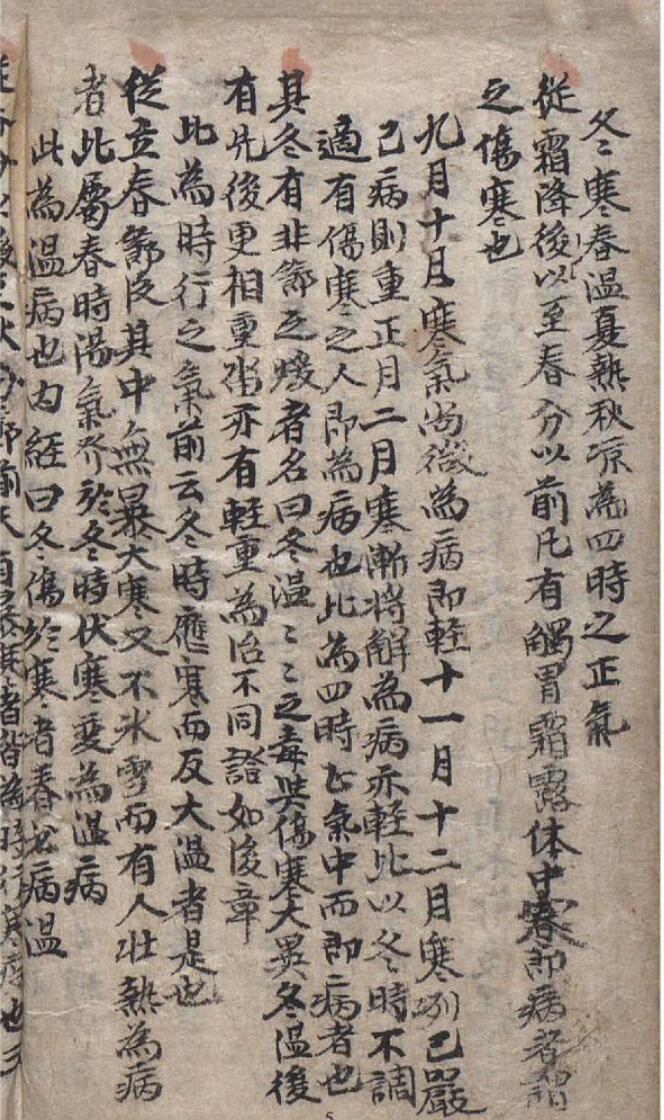 冬寒春温夏熱秋凉為四時之正氣
從霜降後以至春分以前凡有觸冒霜露体中寒即病者謂
之傷寒也
九月十月寒氣尚微為病即輕十一月十二月寒冽已嚴
已病則重正月二月寒漸将觧為病亦輕此以冬時不調
適有傷寒之人即為病也此為四時正氣中而即病者也
其冬有非節之煖者名曰冬温〻〻之毒與傷寒大異冬温後
有先後更相重沓亦有輕重為治不同證如後章
此為時行之氣前云冬時應寒而反大温者是也
從立春節後其中無暴大寒又不冰雪而有人壮熱為病
者此屬春時陽氣於冬時伏寒变為温病
此為温病也内経曰冬傷於寒者春必病温
5